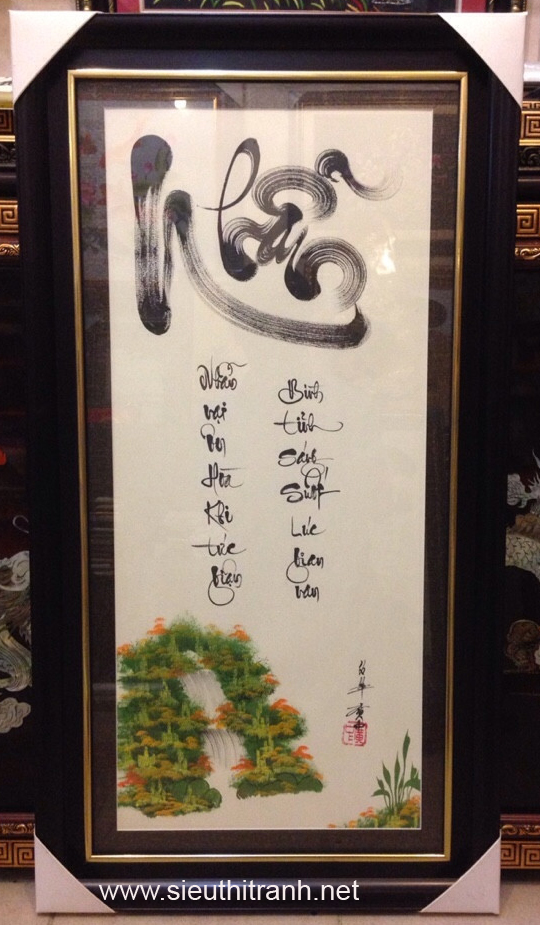 Nhẫn
Nhẫn nại ôn Hòa Khi tức giận
Bình tĩnh Sáng Suốt Lúc gian nan
www.sieuthitranh.net